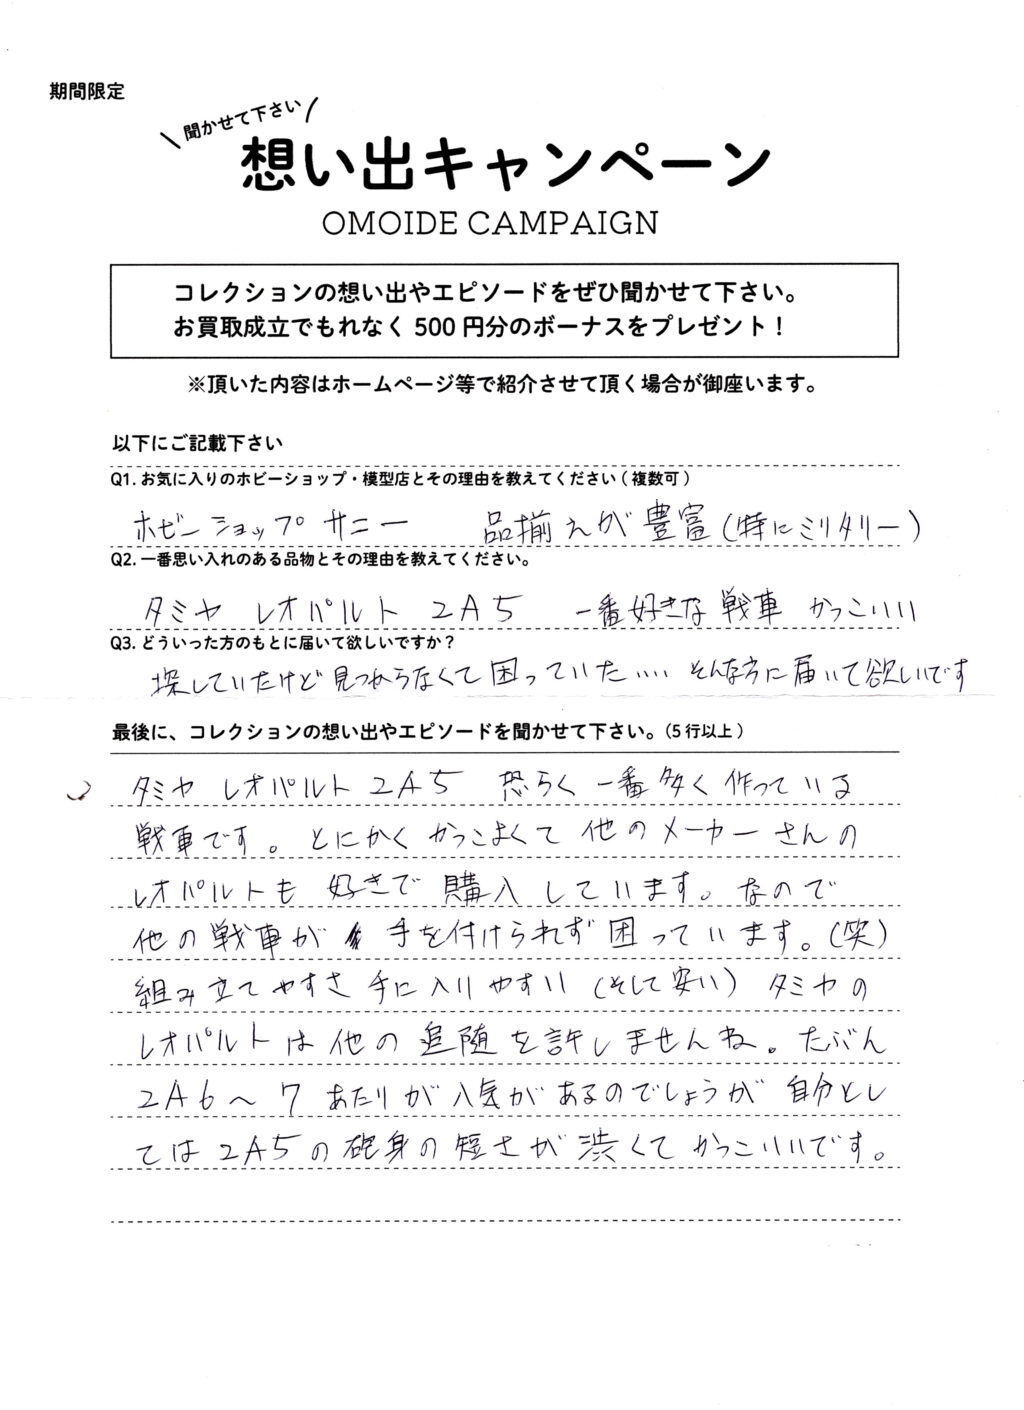 期間限定
聞かせて下さい
想い出キャンペーン
OMOIDE CAMPAIGN
コレクションの想い出やエピソードをぜひ聞かせて下さい。
お買取成立でもれなく 500 円分のボーナスをプレゼント！
※頂いた内容はホームページ等で紹介させて頂く場合が御座います。
以下にご記載下さい
Q1. お気に入りのホビーショップ・模型店とその理由を教えてください ( 複数可 )
ホビーショップ サニー 品揃えが豊富(特にミリタリー)
Q2. 一番思い入れのある品物とその理由を教えてください。
タミヤ レオパルト 2A5 一番好きな戦車 かっこいい
Q3. どういった方のもとに届いて欲しいですか？
探していたけど見つからなくて困っていた.... そんな方に届いて欲しいです
最後に、コレクションの想い出やエピソードを聞かせて下さい。(5 行以上)
タミヤ レオパルト 2A5 恐らく一番多く作っている
戦車です。とにかくかっこよくて他のメーカーさんの
レオパルトも好きで購入しています。なので
他の戦車が手を付けられず困っています。(笑)
組み立てやすさ手に入りやすい(そして安い) タミヤの
レオパルトは他の追随を許しませんね。たぶん
2A6～7 あたりが人気があるのでしょうが 自分とし
ては2A5の砲身の短さが渋くてかっこいいです。